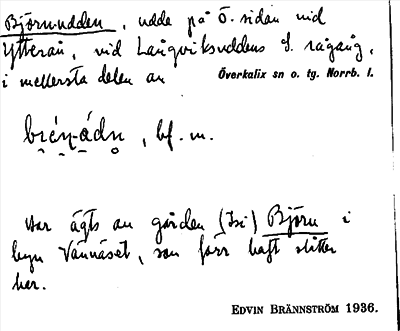 Björnudden, udde på Ö. sidan vid
Ytterån, vid Långviksuddens S. rågång,
i mellersta delen av Överkalix sn o. tg. Norrb. l.
bi̯é̱n̯-á̱dn̥, bf. m.
Har ägts av gården (Isi) Björn i
byn Vännäset, som förr haft slåtter
här.
EDVIN BRÄNNSTRÖM 1936.